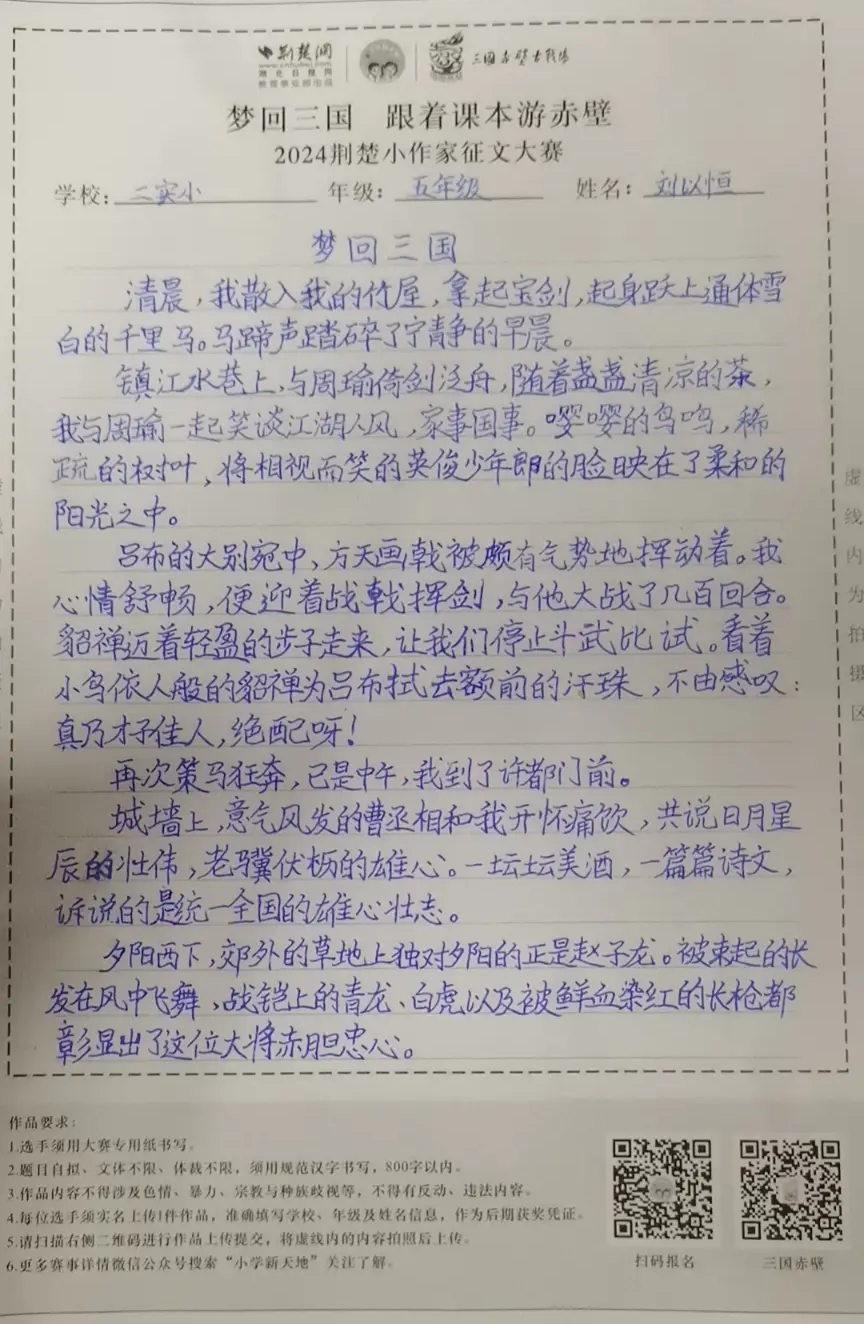 荆楚网
www.cnhubei.com
湖北日报网
三国赤壁古战场
梦回三国 跟着课本游赤壁
2024荆楚小作家征文大赛
学校：二实小 年级：五年级 姓名：刘以恒
梦回三国
清晨，我散入我的竹屋，拿起宝剑，起身跃上通体雪
白的千里马。马蹄声踏碎了宁静的早晨。
镇江水巷上，与周瑜倚剑泛舟，随着盏盏清凉的茶，
我与周瑜一起笑谈江湖人风，家事国事。嘤嘤的鸟鸣，稀
疏的树叶，将相视而笑的英俊少年郎的脸映在了柔和的
阳光之中。
吕布的大别宛中，方天画戟被颇有气势地挥动着。我
心情舒畅，便迎着战戟挥剑，与他大战了几百回合。
貂禅迈着轻盈的步子走来，让我们停止斗武比试。看着
小鸟依人般的貂禅为吕布拭去额前的汗珠，不由感叹：
真乃才子佳人，绝配呀！
再次策马狂奔，已是中午，我到了许都门前。
城墙上，意气风发的曹丞相和我开怀痛饮，共说日月星
辰的壮伟，老骥伏枥的雄心。一坛坛美酒，一篇篇诗文，
诉说的是统一全国的雄心壮志。
夕阳西下，郊外的草地上独对夕阳的正是赵子龙。被束起的长
发在风中飞舞，战铠上的青龙、白虎以及被鲜血染红的长枪都
彰显出了这位大将赤胆忠心。
虚
线
内
为
拍
摄
区
作品要求：
1.选手须用大赛专用纸书写。
2.题目自拟、文体不限、体裁不限，须用规范汉字书写，800字以内。
3.作品内容不得涉及色情、暴力、宗教与种族歧视等，不得有反动、违法内容。
4.每位选手须实名上传1件作品，准确填写学校、年级及姓名信息，作为后期获奖凭证。
5.请扫描右侧二维码进行作品上传提交，将虚线内的内容拍照后上传。
6.更多赛事详情微信公众号搜索“小学新天地”关注了解。
扫码报名
三国赤壁